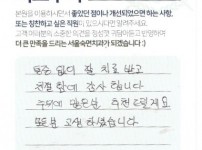 본원을 이용하시면서 좋았던 점이나 개선되었으면 하는 사항,
또는 칭찬하고 싶은 직원이 있으시다면 말씀해주세요.
고객 여러분의, 소중한 의견을 경청하고 귀담아듣고 반영하여
더 큰 만족을 드리는 서울숙면치과가 되겠습니다 :)
통증 없이 잘 치료 받고
친절함에 감사 합니다
주위에 많은분 추천드릴게요
많은분 고생 하셨습니다